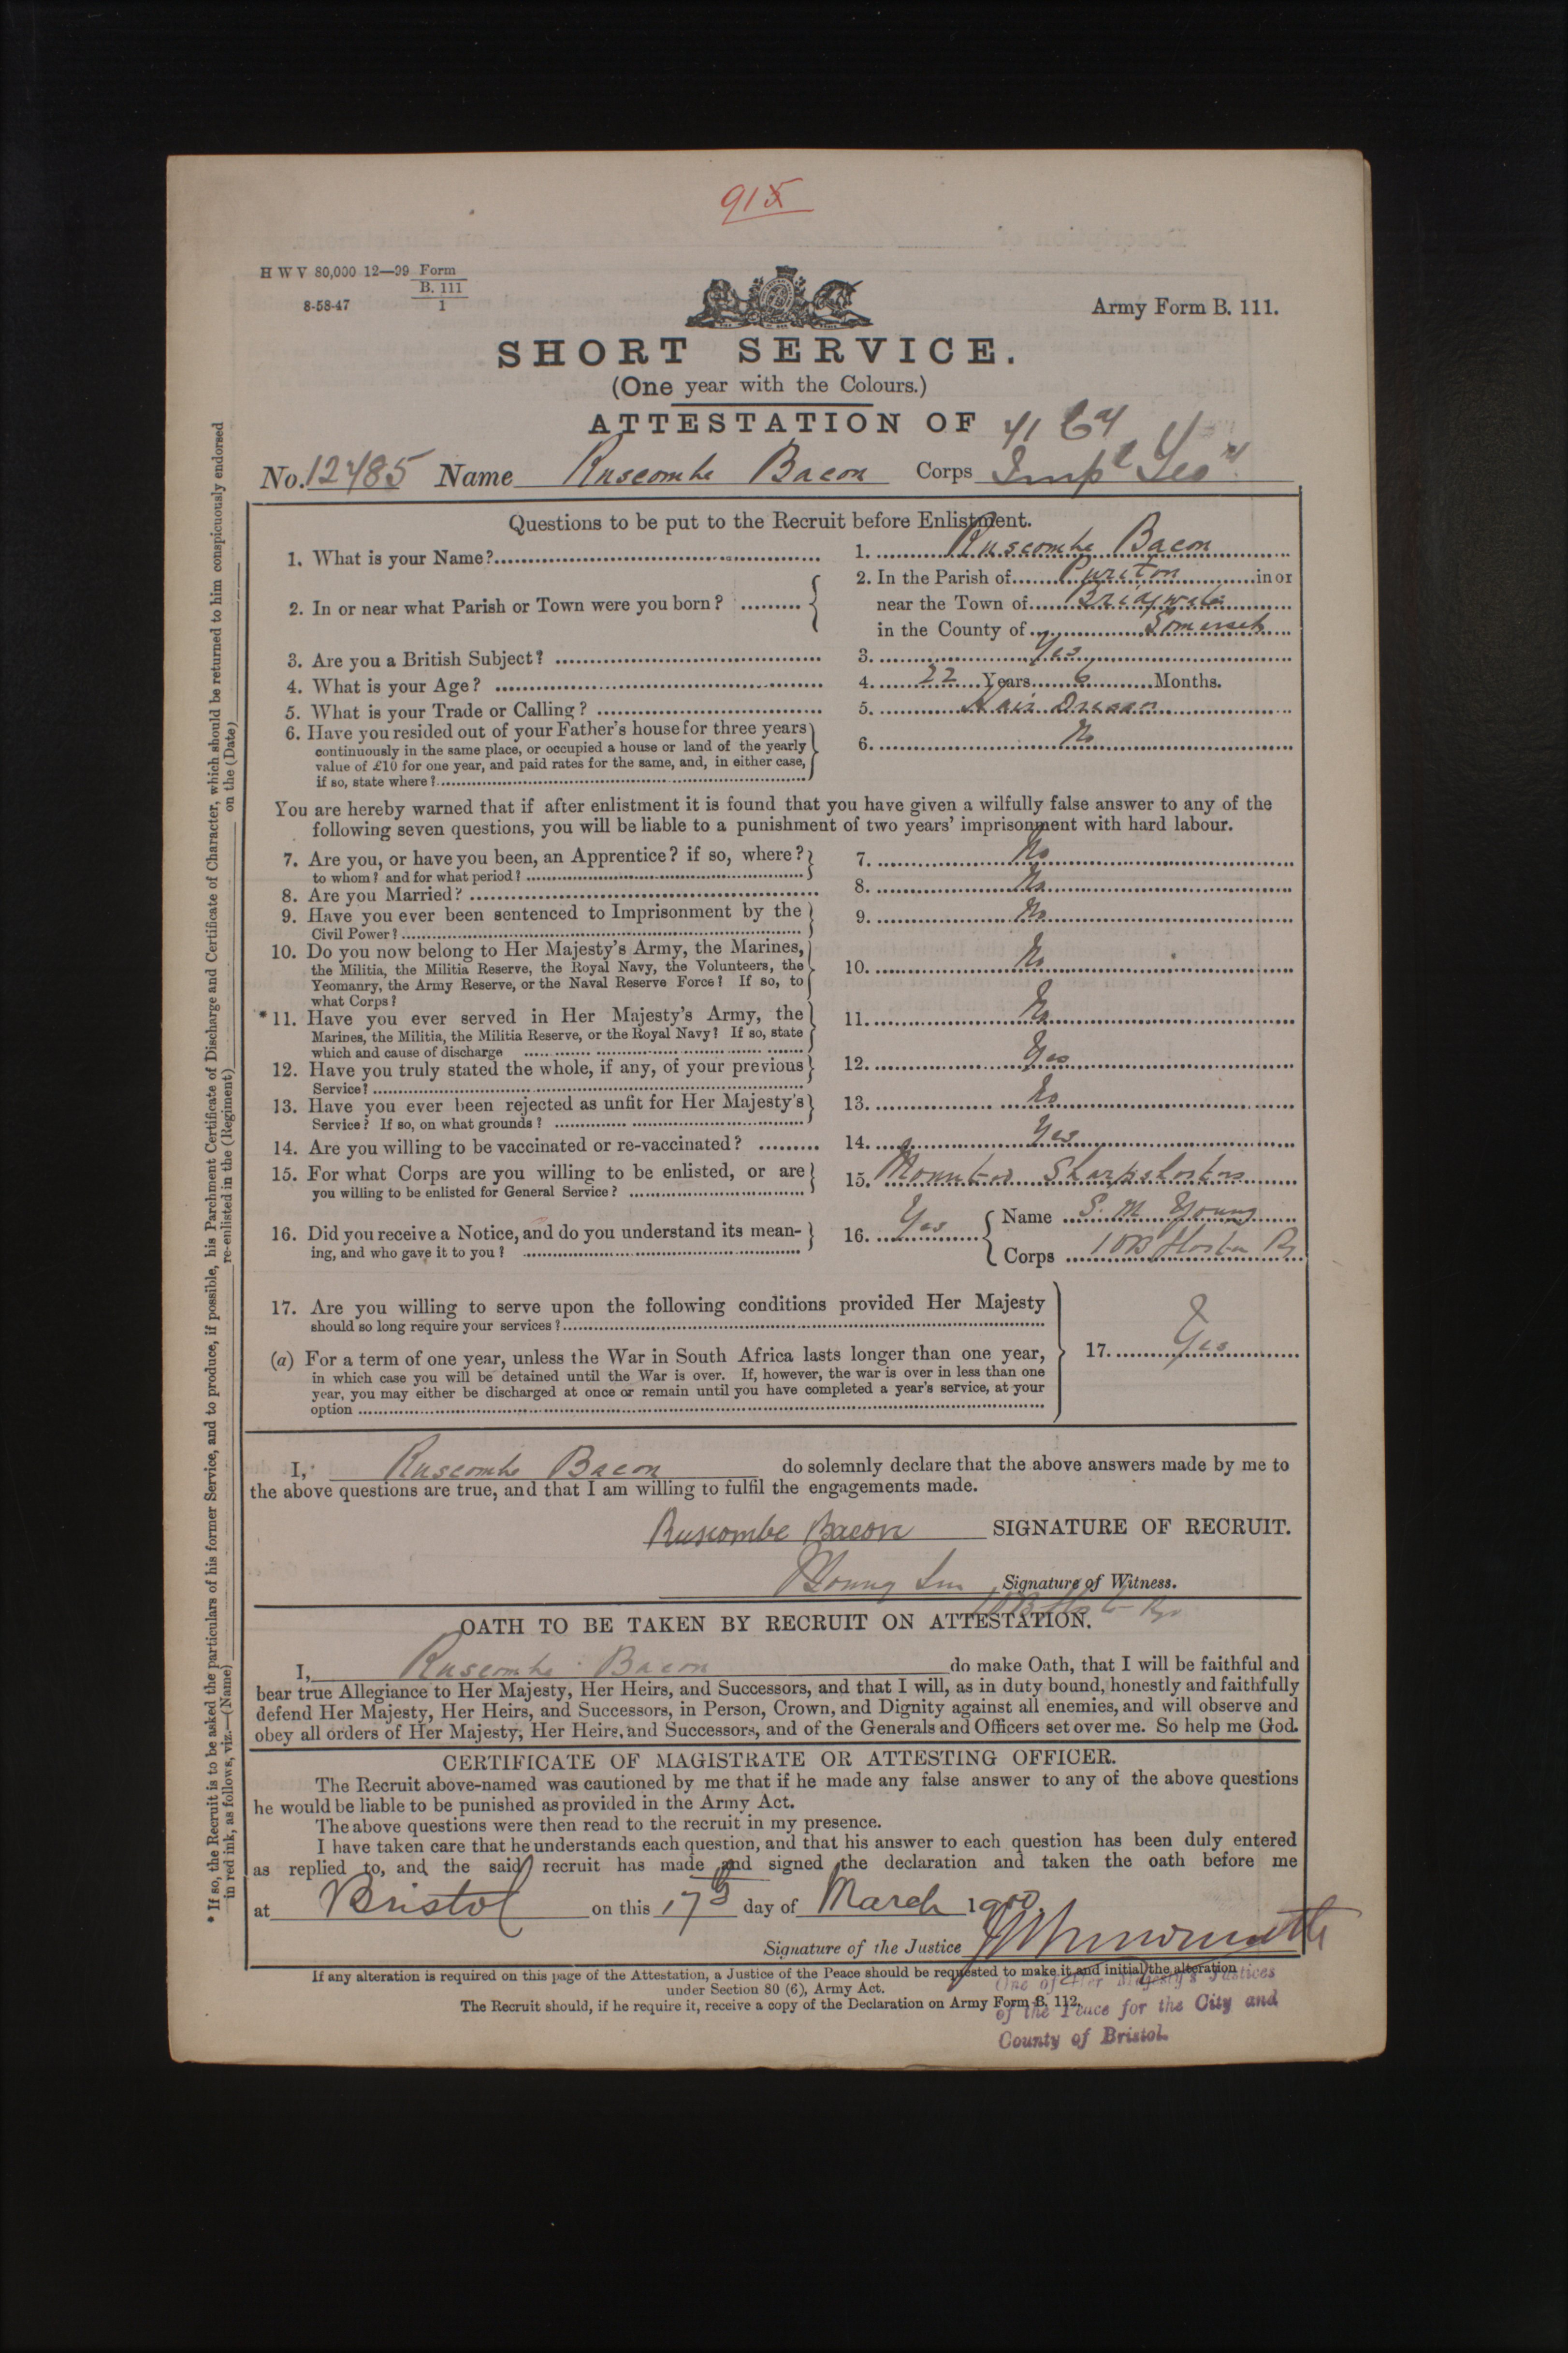 915
H W V 80,000 12—99 Form B. 111 1
8-58-47
Army Form B. 111.
SHORT SERVICE.
(One year with the Colours.)
ATTESTATION OF 41 Coy
No. 12485 Name Ruscombe Bacon Corps Impl Yeoy
Questions to be put to the Recruit before Enlistment.
1. What is your Name? 1. Ruscombe Bacon
2. In or near what Parish or Town were you born? 2. In the Parish of Puriton in or
near the Town of Bridgwater
in the County of Somerset
3. Are you a British Subject? 3. Yes
4. What is your Age? 4. 22 Years 6 Months.
5. What is your Trade or Calling? 5. Hair Dresser
6. Have you resided out of your Father's house for three years 6. No
continuously in the same place, or occupied a house or land of the yearly
value of £10 for one year, and paid rates for the same, and, in either case,
if so, state where?
You are hereby warned that if after enlistment it is found that you have given a wilfully false answer to any of the
following seven questions, you will be liable to a punishment of two years' imprisonment with hard labour.
7. Are you, or have you been, an Apprentice? if so, where? 7. No
to whom? and for what period?
8. Are you Married? 8. No
9. Have you ever been sentenced to Imprisonment by the 9. No
Civil Power?
10. Do you now belong to Her Majesty's Army, the Marines, 10. No
the Militia, the Militia Reserve, the Royal Navy, the Volunteers, the
Yeomanry, the Army Reserve, or the Naval Reserve Force? If so, to
what Corps?
*11. Have you ever served in Her Majesty's Army, the 11. No
Marines, the Militia, the Militia Reserve, or the Royal Navy? If so, state
which and cause of discharge
12. Have you truly stated the whole, if any, of your previous 12. Yes
Service?
13. Have you ever been rejected as unfit for Her Majesty's 13. No
Service? If so, on what grounds?
14. Are you willing to be vaccinated or re-vaccinated? 14. Yes
15. For what Corps are you willing to be enlisted, or are 15. Mounted Sharpshooters
you willing to be enlisted for General Service?
16. Did you receive a Notice, and do you understand its mean- 16. Yes Name S. M Young
ing, and who gave it to you? Corps
17. Are you willing to serve upon the following conditions provided Her Majesty
should so long require your services?
(a) For a term of one year, unless the War in South Africa lasts longer than one year, 17. Yes
in which case you will be detained until the War is over. If, however, the war is over in less than one
year, you may either be discharged at once or remain until you have completed a year's service, at your
option
I, Ruscombe Bacon do solemnly declare that the above answers made by me to
the above questions are true, and that I am willing to fulfil the engagements made.
Ruscombe Bacon SIGNATURE OF RECRUIT.
Young Signature of Witness.
OATH TO BE TAKEN BY RECRUIT ON ATTESTATION.
I, Ruscombe Bacon do make Oath, that I will be faithful and
bear true Allegiance to Her Majesty, Her Heirs, and Successors, and that I will, as in duty bound, honestly and faithfully
defend Her Majesty, Her Heirs, and Successors, in Person, Crown, and Dignity against all enemies, and will observe and
obey all orders of Her Majesty, Her Heirs, and Successors, and of the Generals and Officers set over me. So help me God.
CERTIFICATE OF MAGISTRATE OR ATTESTING OFFICER.
The Recruit above-named was cautioned by me that if he made any false answer to any of the above questions
he would be liable to be punished as provided in the Army Act.
The above questions were then read to the recruit in my presence.
I have taken care that he understands each question, and that his answer to each question has been duly entered
as replied to, and the said recruit has made and signed the declaration and taken the oath before me
at Bristol on this 17th day of March 1900
Signature of the Justice
If any alteration is required on this page of the Attestation, a Justice of the Peace should be requested to make it and initial the alteration
under Section 80 (6), Army Act.
The Recruit should, if he require it, receive a copy of the Declaration on Army Form B. 112.
One of Her Majesty's Justices
of the Peace for the City and
County of Bristol.
* If so, the Recruit is to be asked the particulars of his former Service, and to produce, if possible, his Parchment Certificate of Discharge and Certificate of Character, which should be returned to him conspicuously endorsed
in red ink, as follows, viz.—(Name) re-enlisted in the (Regiment) on the (Date)